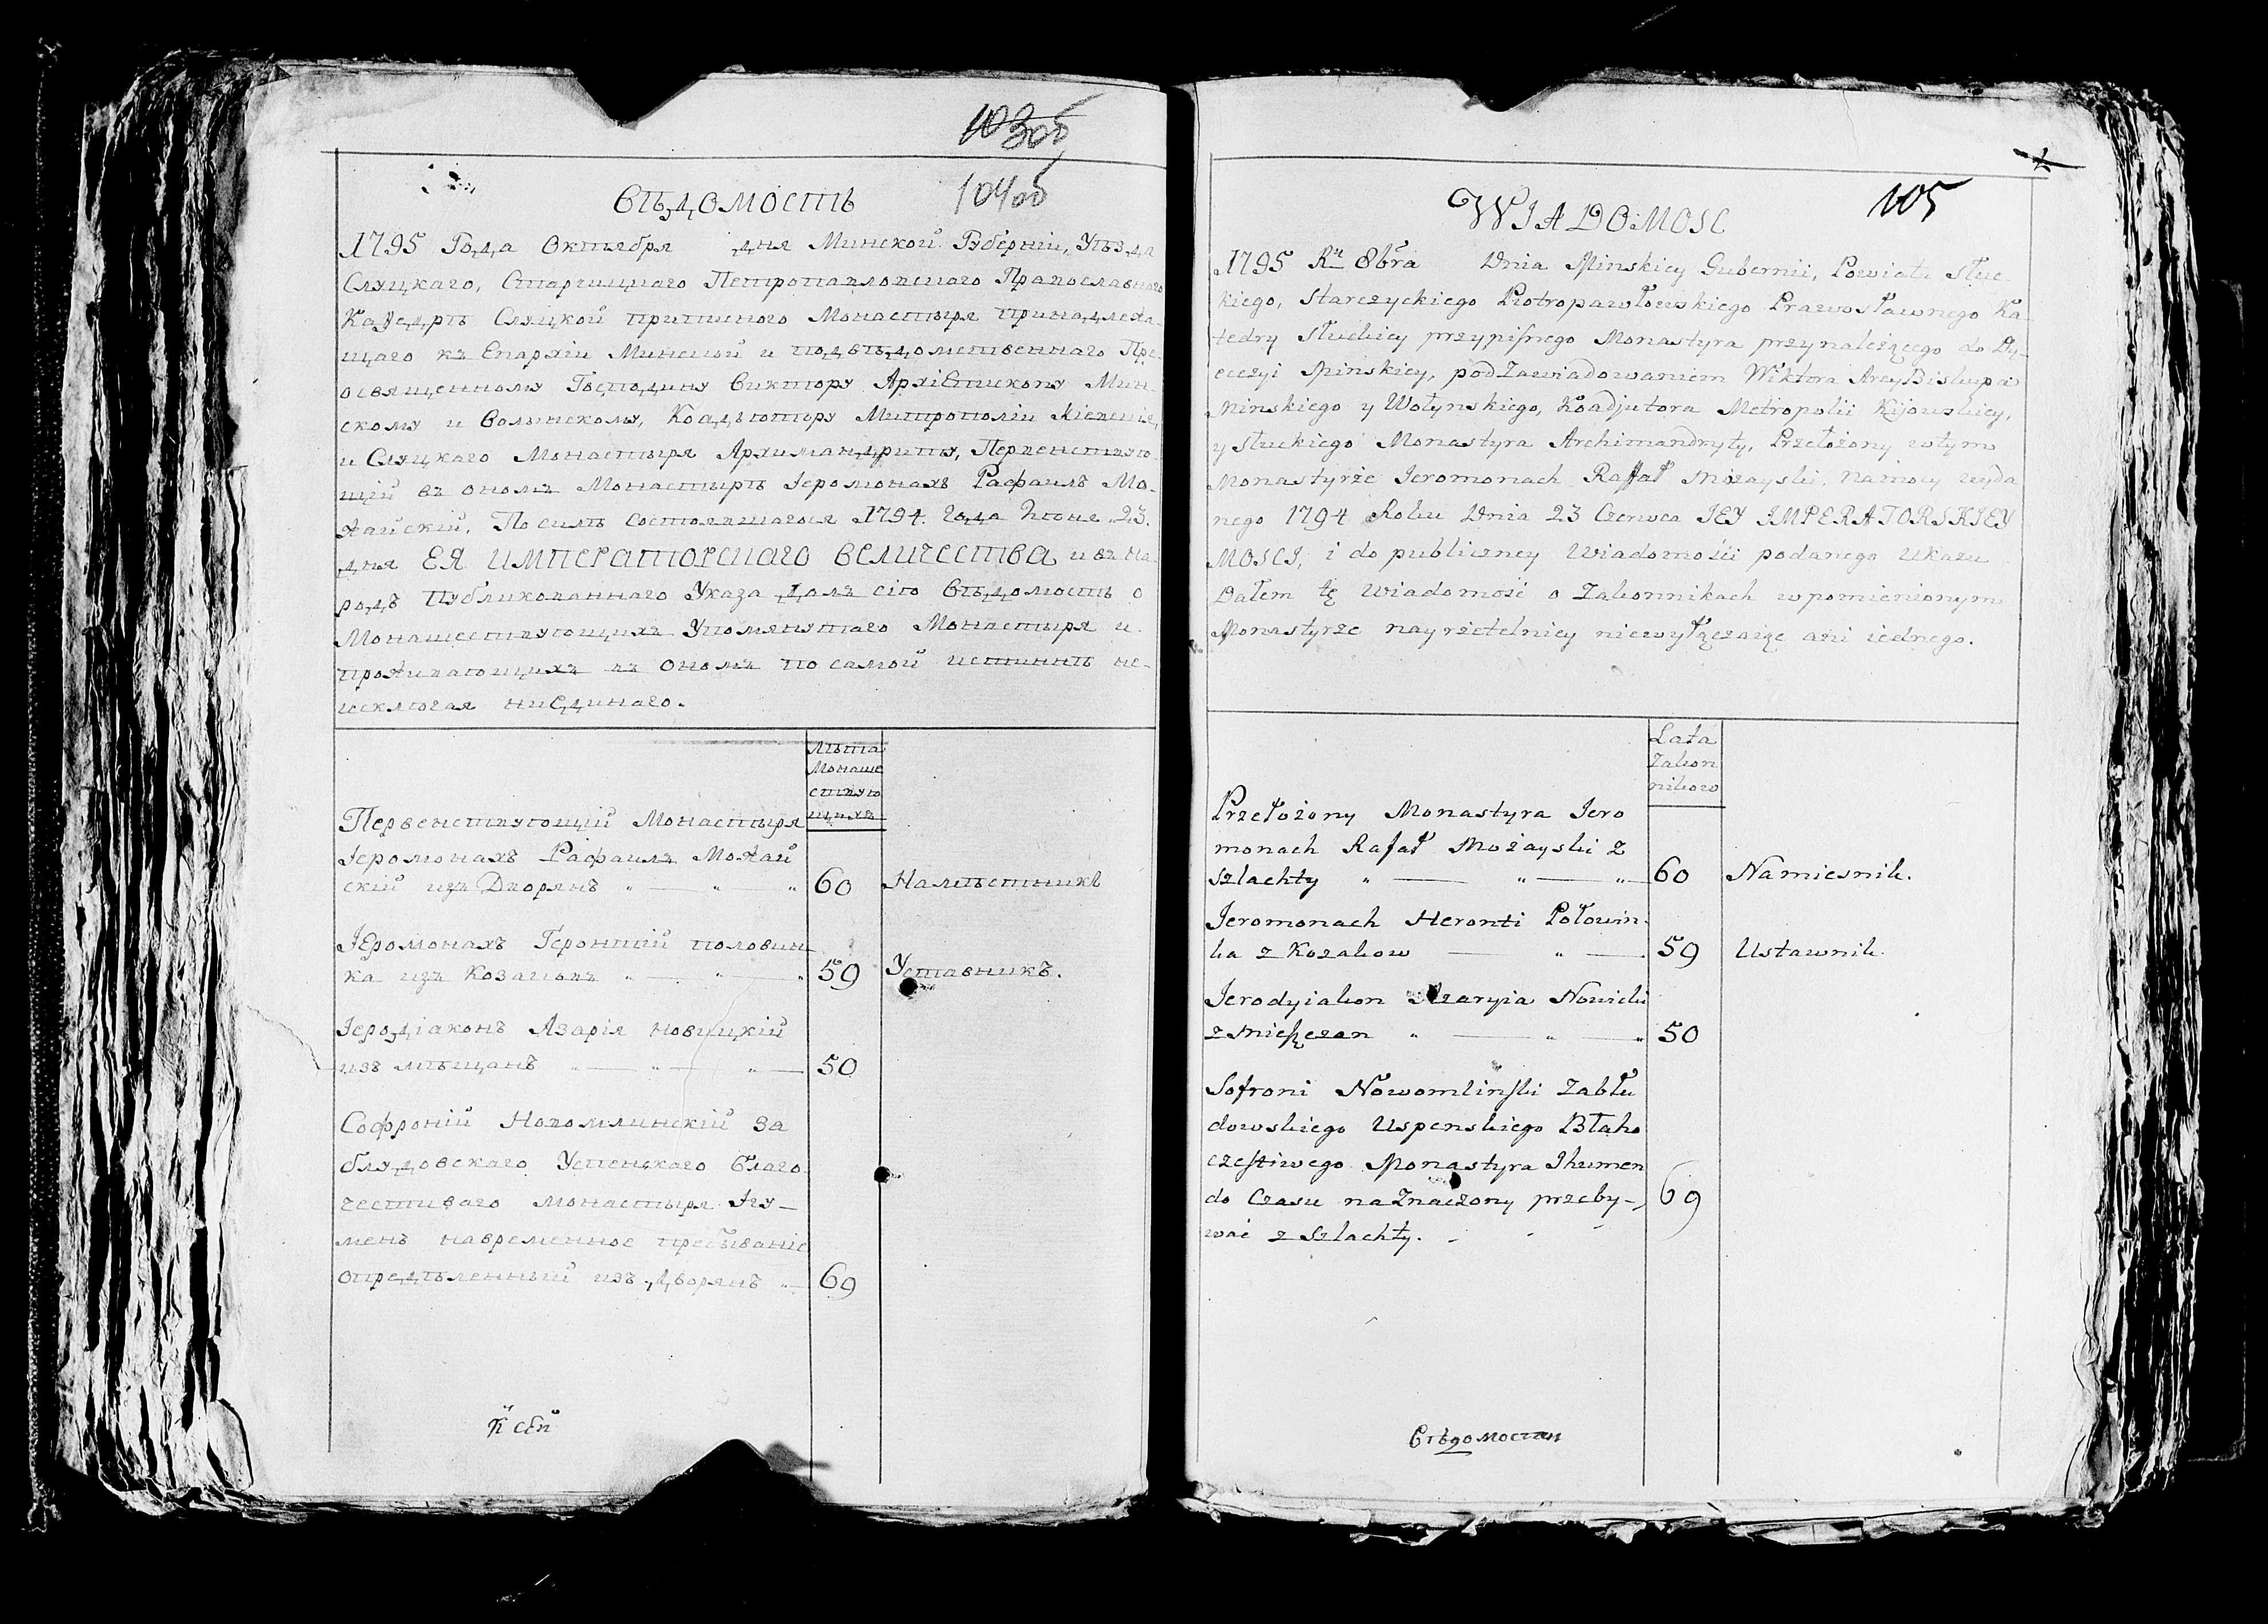 103об
104об
Вѣдомость
1795 Года Октября дня Минской Губерніи, Уѣзда
Слуцкаго, Старчицкаго Петропавловского Православного
Кафедрѣ Слуцкой приписного Монастыря принадлежа-
щаго къ Епархіи Минской и подвѣдомственнаго Пре-
освященному Господину Виктору АрхіЕпископу Мин-
скому и Волынскому, Коадъютору Митрополіи Кіевскія,
и Слуцкаго Монастыря Архимандриту, Первенствую-
щій въ ономъ Монастырѣ Іеромонахъ Рафаилъ Мо-
жайскій. По силѣ состоявшагося 1794 года Июня 23.
дня ЕЯ ИМПЕРАТОРСКАГО ВЕЛИЧЕСТВА и въ на-
родъ Публикованнаго Указа далъ сію Вѣдомость о
Монашествующихъ Упомянутаго Монастыря и
проживающихъ въ ономъ по самой истиннѣ не-
исключая ниЕдинаго.
Лѣта
Монаше
ствую
щихъ
Первенствующій Монастыря
Іеромонахъ Рафаилъ Можай
скій изъ Дворянъ 60 Намѣстникъ
ІЕромонахъ Геронтій половин
ка изъ Козаковъ 59 Уставникъ.
Іеродіаконъ Азарія новицкій
изъ мѣщанъ 50
Софроній Новомлинскій За
блудовскаго Успенскаго Благо
честиваго монастыря Игу-
менъ навременное пребываніе
опредѣленный изъ Дворянъ 69
К сей
105
WIADOMOSC
1795 Rꝟ 8bra Dnia Minskiey Gubernii, Powiatu Słuc
kiego, Starczyckiego Piotropawłowskiego Prawosławnego Ka-
tedry Słuckiey przypisnego Monastyra przynależącego do Dy-
ecezyi Minskiey, pod Zawiadowaniem Wiktora ArcyBiskupa
Minskiego y Wołynskiego, Koadjutora Metropolii Kijowskiey,
y Słuckiego Monastyra Archimandryty, Przełożony wtym
Monastyrze Jeromonach Raffał Możayski. Namocy wyda
nego 1794 Roku Dnia 23 Czerwca JEY IMPERATORSKIEY
MOSCI, i do publiczney Wiadomości podanego Ukazu
Dałem tę Wiadomość o Zakonnikach wpomienionym
Monastyrze nayrzetelniey niewyłączaiąc ani iednego.
Lata
Zakon
nikow
Przełożony Monastyra Jero
monach Rafał Możayski z
Szlachty 60 Namiesnik.
Jeromonach Heronti Połowin-
ka z Kozakow 59 Ustawnik.
Jerodyiakon Azaryia Nowicki
z Mieszczan 50
Sofroni Nowomlinski Zabłu
dowskiego Uspenskiego Błaho
czestiwego Monastyra Ihumen
do Czasu naZnaczony przeby- 69
wać z Szlachty.
Вѣдомости